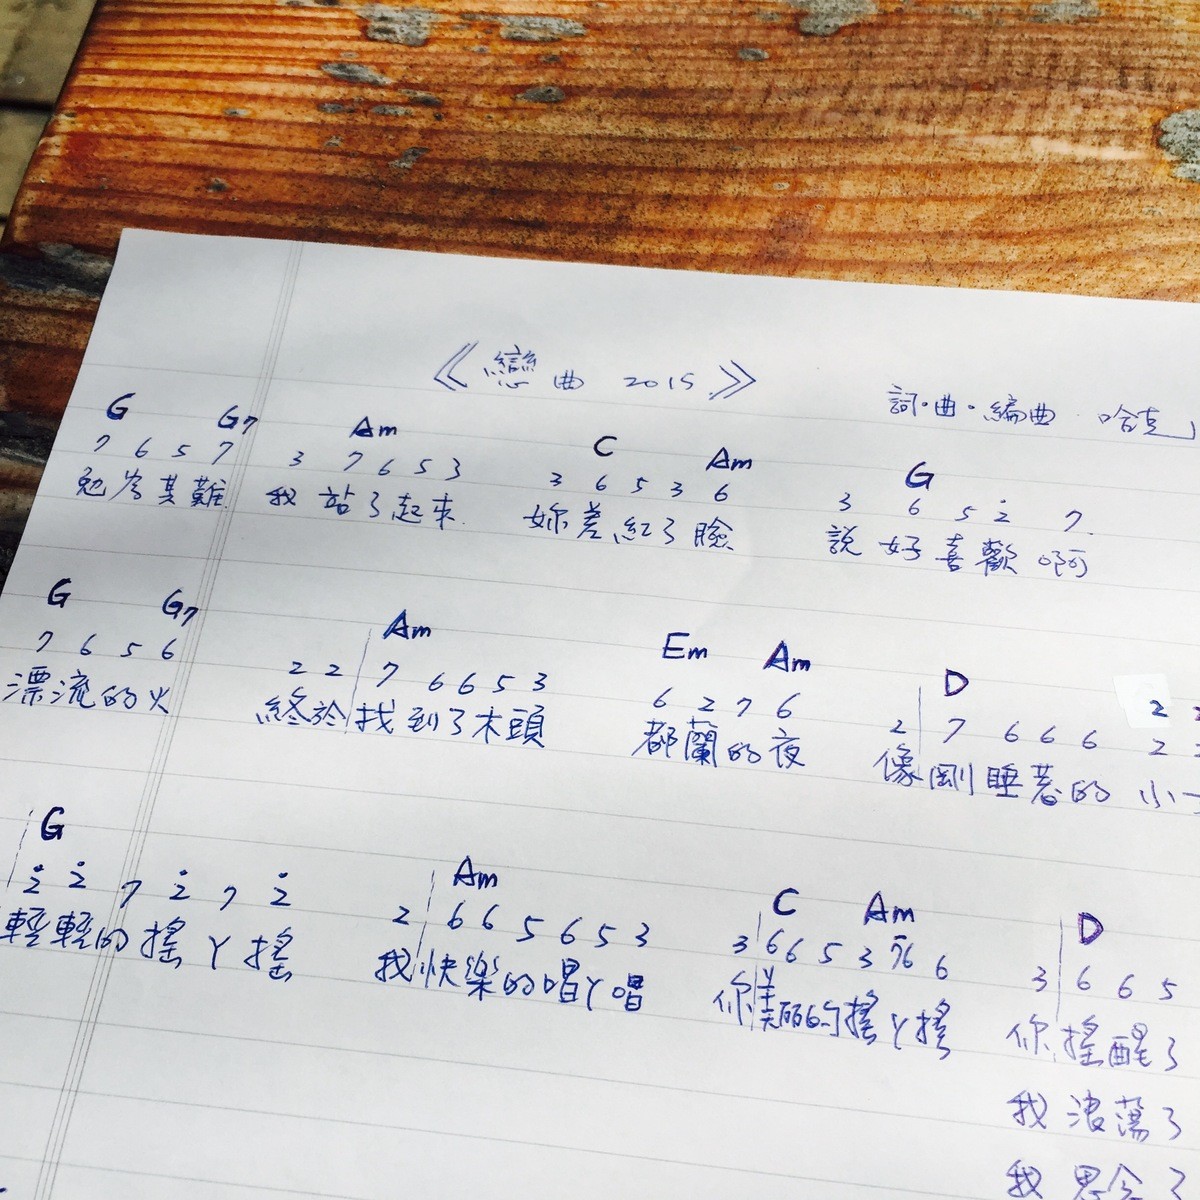 《戀曲 2015》
詞·曲·編曲 哈克
G G7 Am C Am G
7 6 5 7 3 7 6 5 3 3 6 5 3 6 3 6 5 2̇ 7
勉為其難 我站了起來 妳羞紅了臉 說好喜歡啊
G G7 Am Em Am D
7 6 5 6 2 2 7 6 6 5 3 6 2 7 6 2 7 6 6 6 2 2
漂流的火 終於找到了木頭 都蘭的夜 像剛睡著的小
G Am C Am D
2̇ 2̇ 7 2̇ 7 2̇ 2 6 6 5 6 5 3 3 6 6 5 3 76 6 3 6 6 5
輕輕的搖ㄚ搖 我快樂的唱ㄚ唱 你美丽的搖ㄚ搖 你搖醒了
我浪蕩了
我思念了